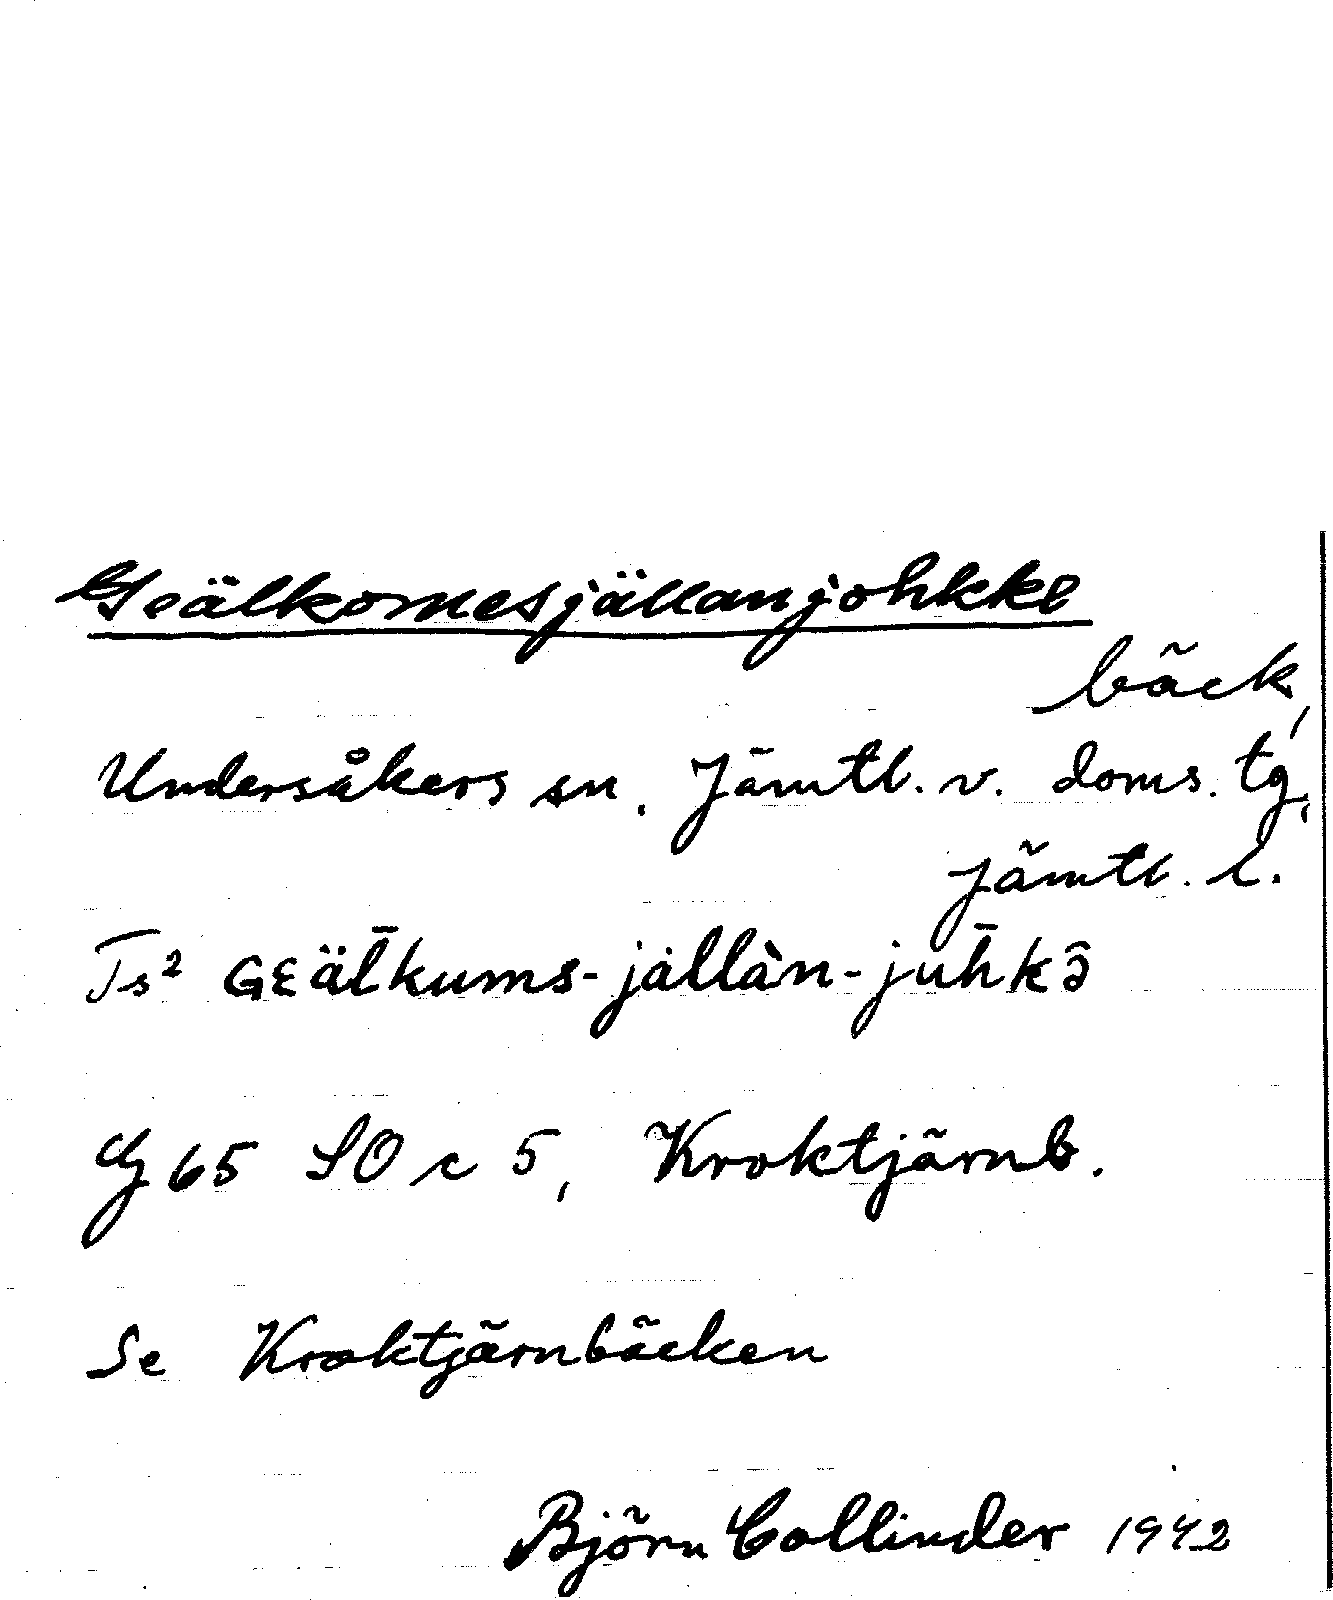 Geälkomesjällanjohkke
bäck,
Undersåkers sn. Jämtl. v. doms. tg,
Jämtl. l.
Ts² Gεäl̄kums-jällàn-juh̄kə̂
G 65 SO c 5, Kroktjärnb.
Se Kroktjärnbäcken
Björn Collinder 1942